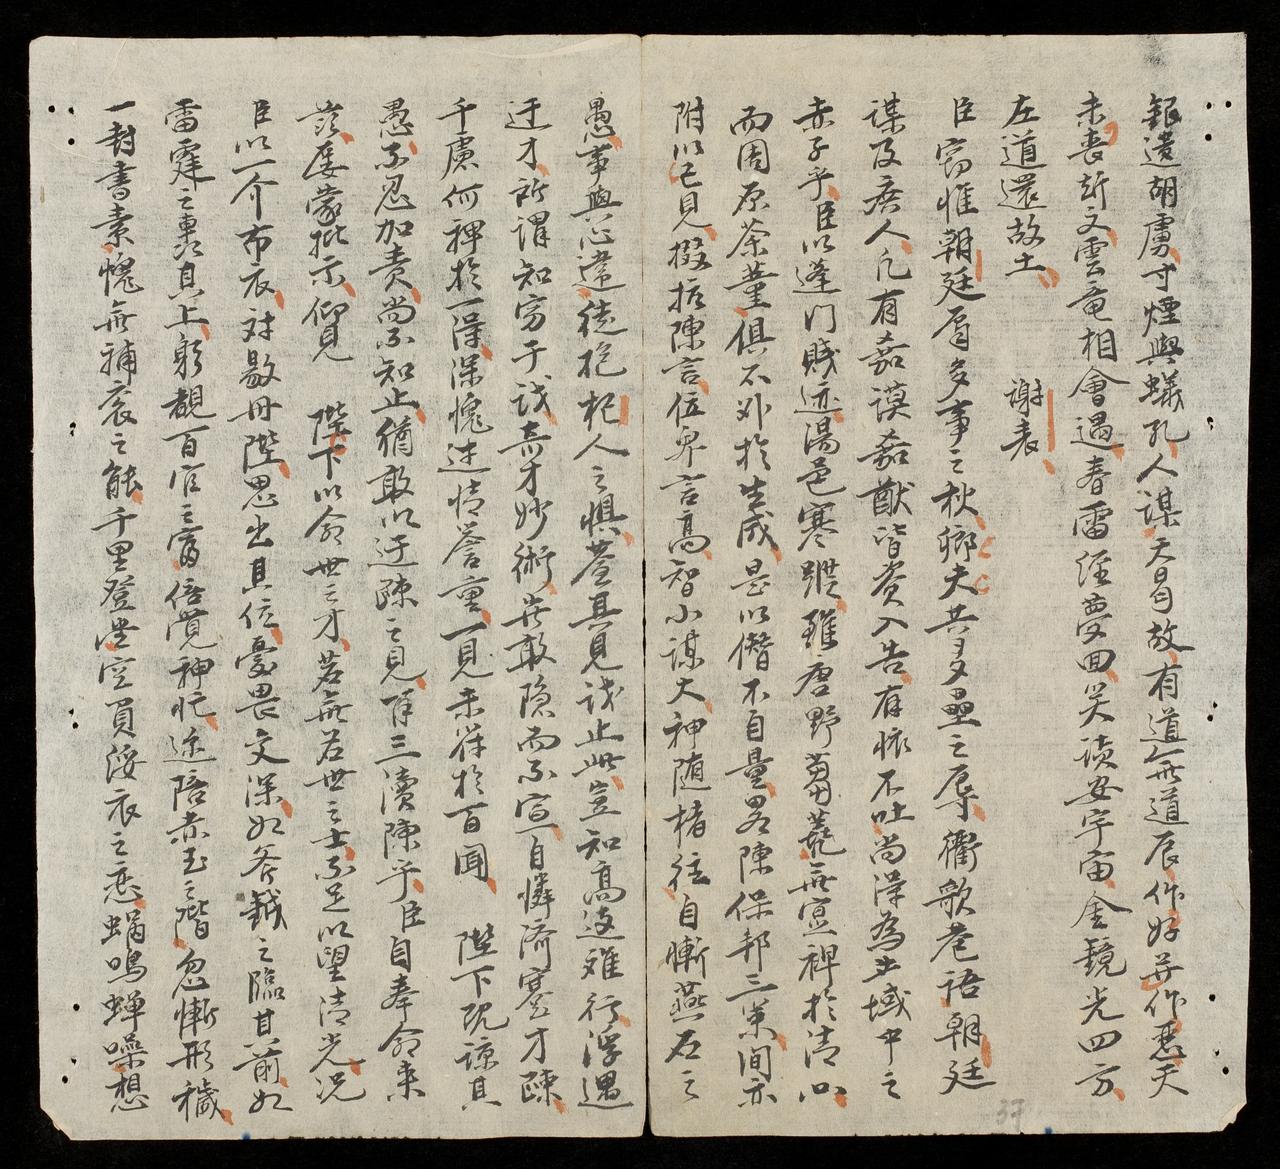 銀漢胡虜寸煙與蟻孔人謀天曷故有道無道辰作好并作惡天
未喪斯文雲竜相會遇春雷經夢回笑談安宇宙金鏡光四方
左道還故土　　謝表
臣竊惟朝廷有多事之秋鄉夫共多壘之辱衢歌巷語朝廷
謀及庶人凡有嘉謨嘉猷皆資入告有懷不吐尚得為土域中之
赤子乎臣以蓬门賤迹湯邑寒蹤雖唐野蒭蕘無寔裨於清
而周原荼菫俱不外於生成是以僭不自量畧陳保邦三策间亦
附以己見掇拾陳言位卑言高智小謀大神随楮往自慚燕石之
愚事與心違徒抱杞人之懼葢其見浅止此豈知高遠难行浮遇
迂才所謂知窮于浅奇才妙術豈敢隐而不宣自憐济蹇才踈
千慮何裨於一得深愧迷情誉重一見未符於百闻　陛下既諒其
愚不忍加責尚不知止猶敢以迂踈之見再三瀆陳乎臣自奉命来
茲屡蒙批示仰見　陛下以命世之才若無若世之士不足以望清光况
臣以一介布衣对敭丹陛思出其位憂畏交深如斧鉞之臨其前如
雷霆之轟其上躬覩百官之富倍覚神忙途陪赤玉之階忽慚形穢
一封書素愧無補袞之能千里登堂空負緌衣之恋蜩鳴蟬噪想